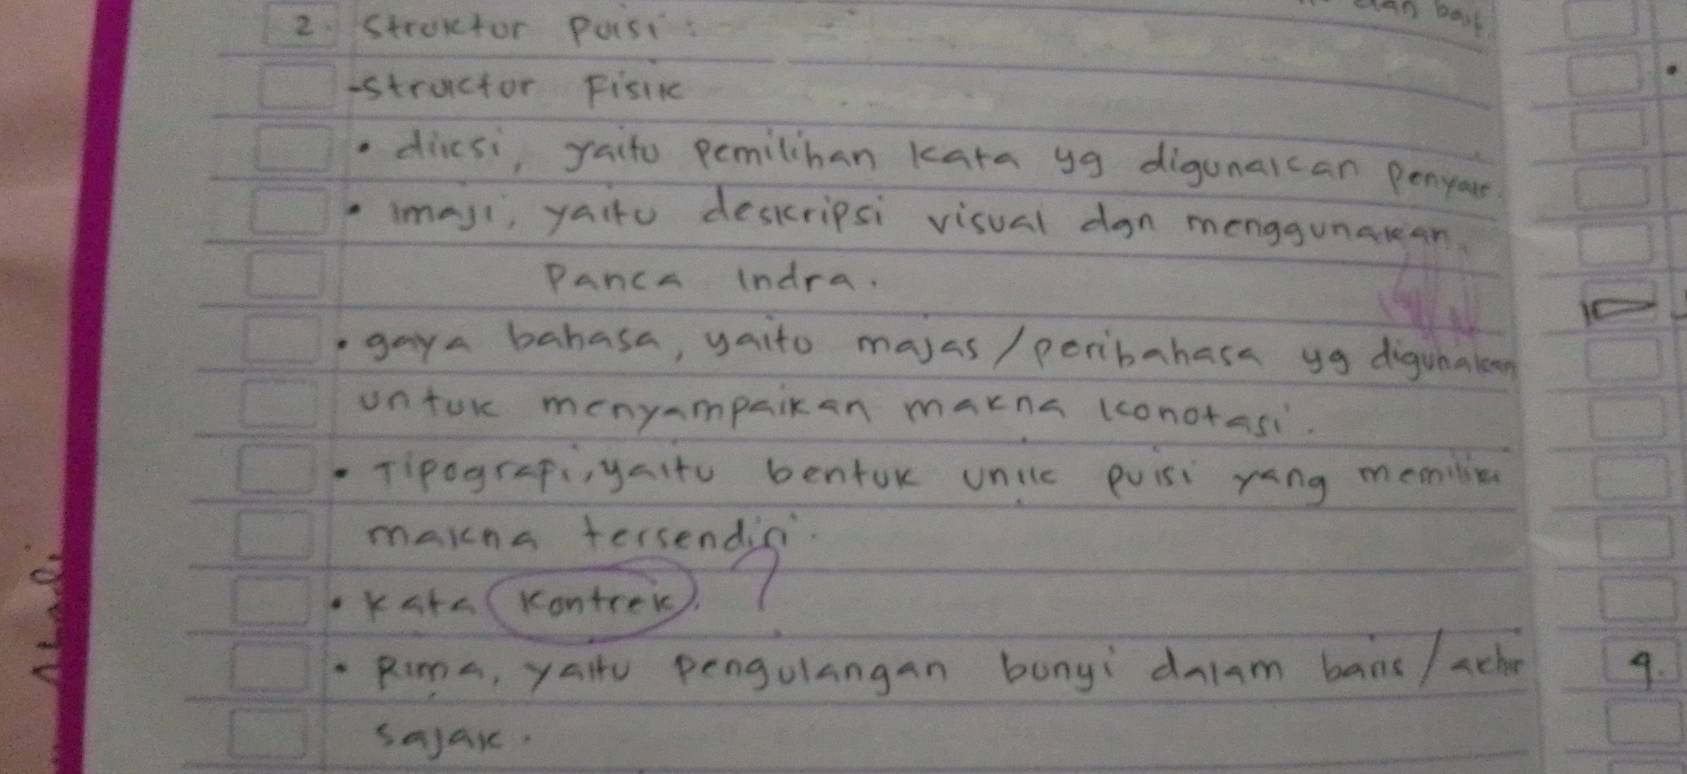 dan bait
2. Struktur Puisi:
-Struktur Fisik
• diksi, yaitu pemilihan kata yg digunakan penyair.
• imaji, yaitu deskripsi visual dgn menggunakan
panca indra.
• gaya bahasa, yaitu majas/peribahasa yg digunakan
untuk menyampaikan makna konotasi.
• Tipografi, yaitu bentuk unik puisi yang memiliki
makna tersendiri.
• Kata Kontrek. ?
• Rima, yaitu pengulangan bunyi dalam baris/akhir
sajak.
9.